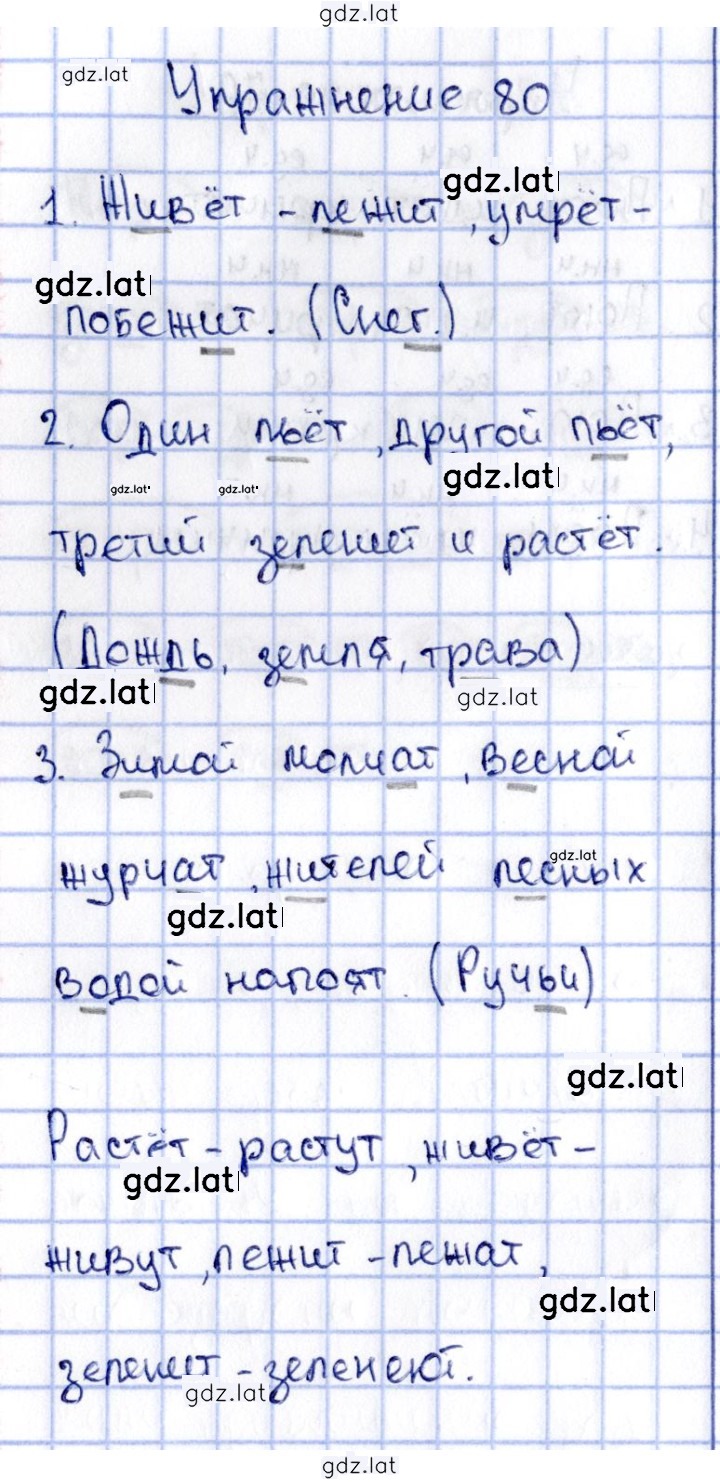 gdz.lat
gdz.lat
Упражнение 80
gdz.lat
1. Живёт - лежит, умрёт -
gdz.lat
побежит. (Снег.)
2. Один пьёт, другой пьёт,
gdz.lat
gdz.lat gdz.lat
третий зеленеет и растёт.
(Дождь, земля, трава)
gdz.lat gdz.lat
3. Зимой молчат, весной
gdz.lat
журчат, жителей лесных
gdz.lat
водой напоят. (Ручьи)
gdz.lat
Растёт - растут, живёт -
gdz.lat
живут, лежит - лежат,
gdz.lat
зеленеет - зеленеют.
gdz.lat
gdz.lat